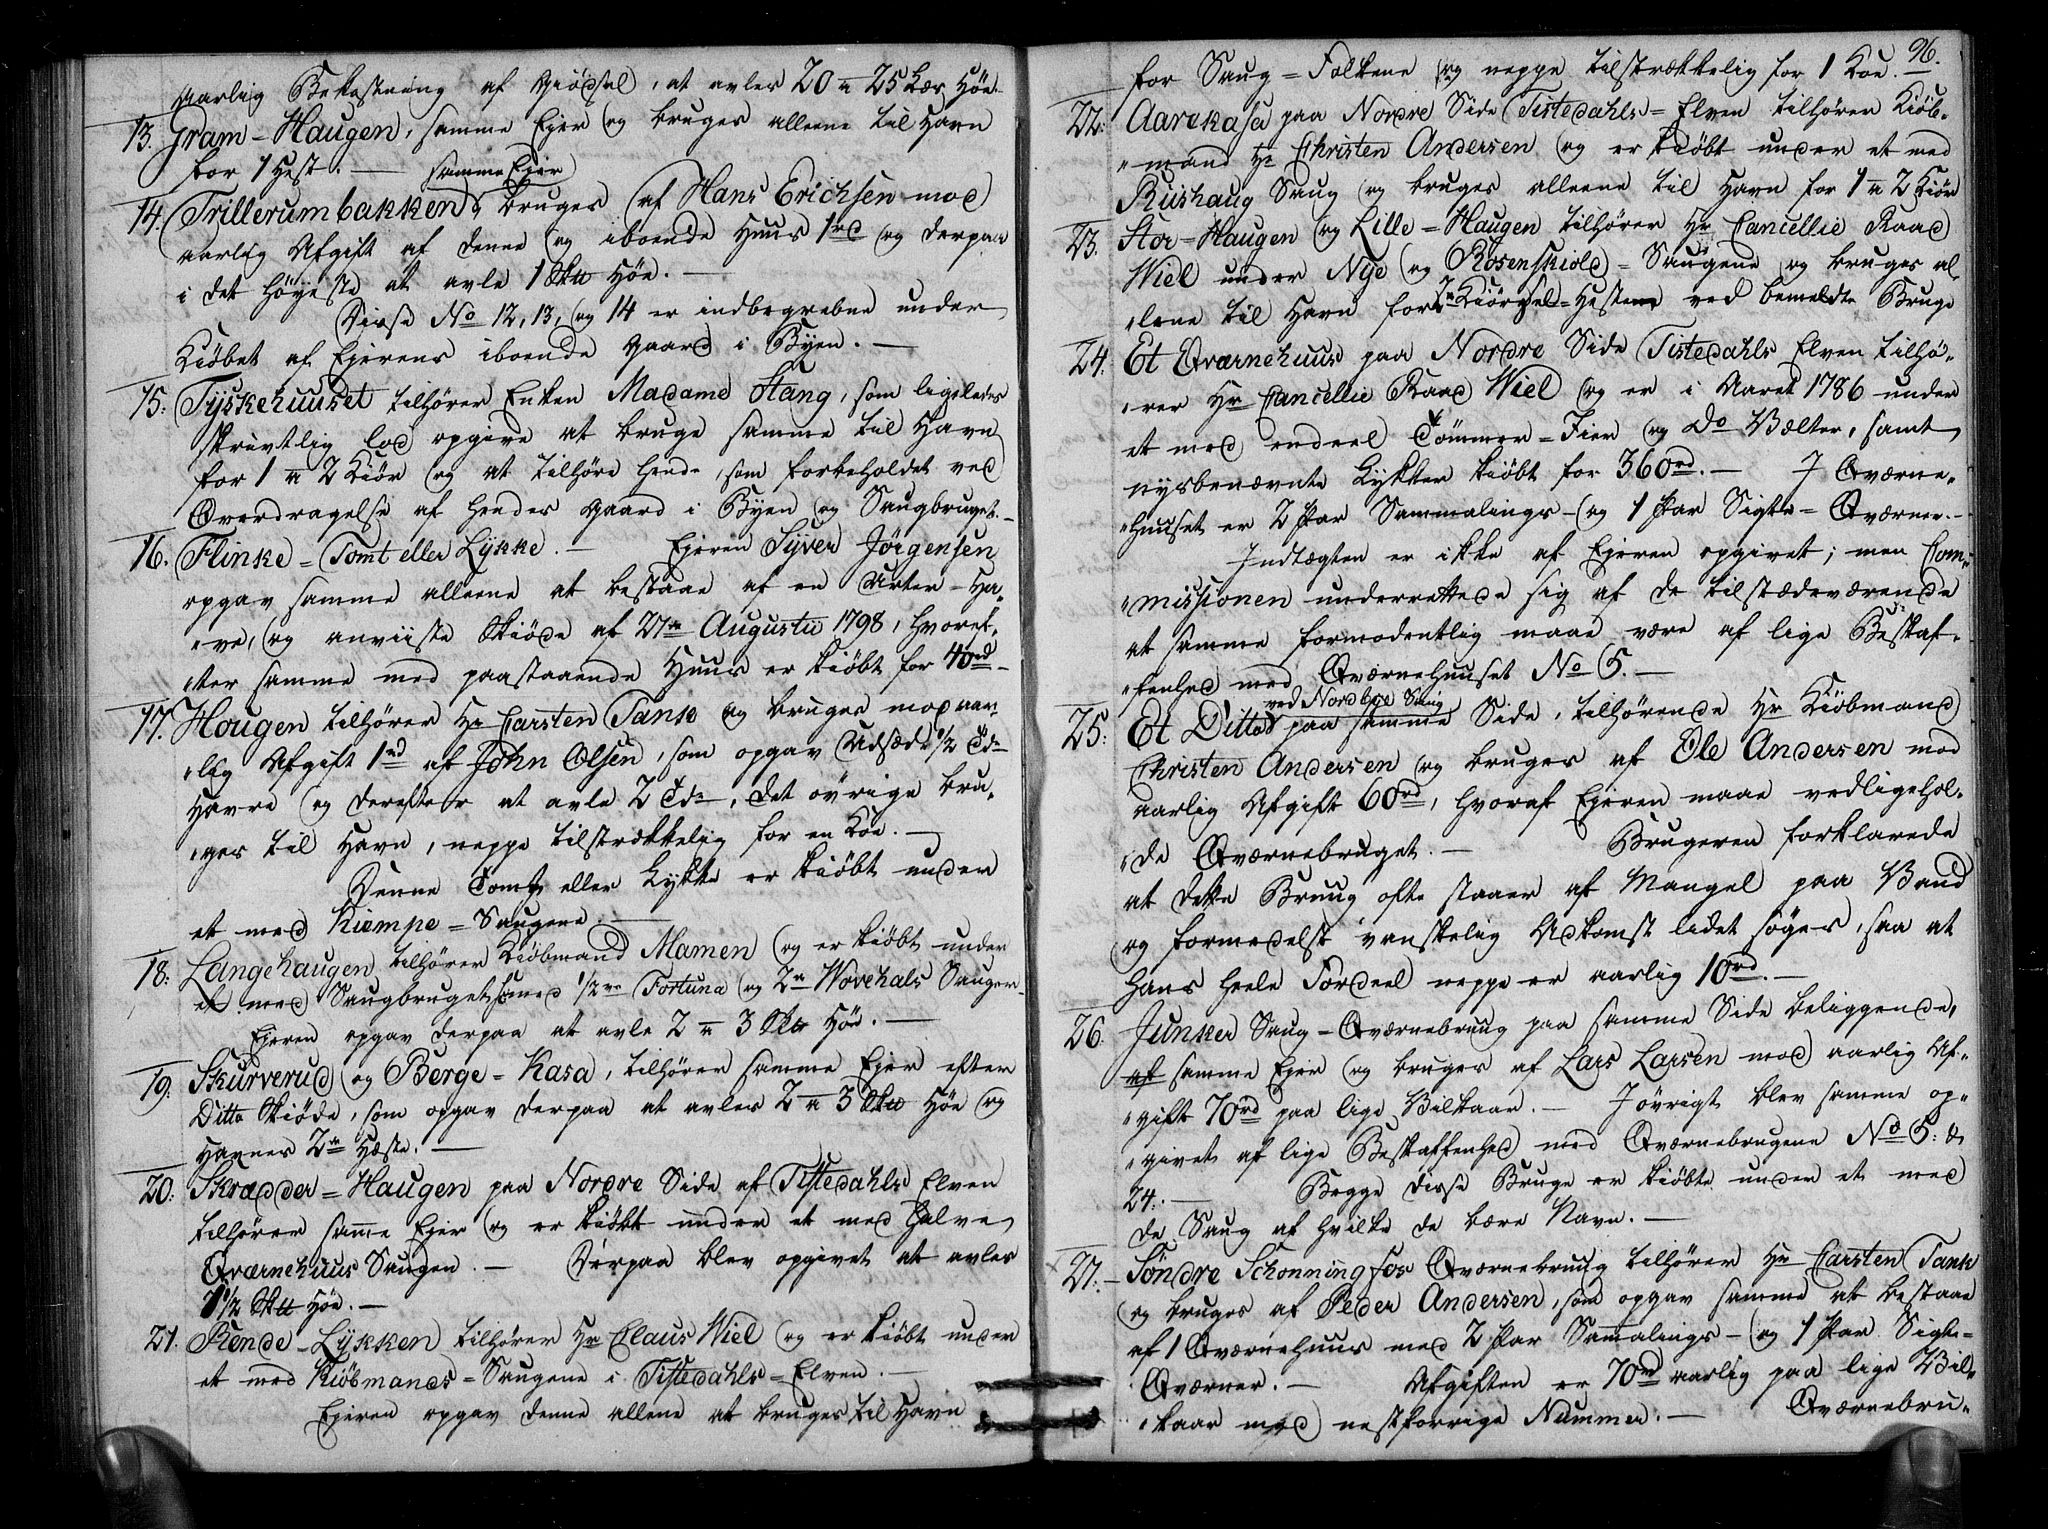 aarlig Bekostning af Giödsel, at avles 20 a 25 Læs Höe
13. Gram=Haugen, samme Ejer og bruges alleene til Havn
for 1 Hest. — samme Ejer
14. Trillerumbakken, bruges af Hans Erichsen mod
aarlig Afgift af denne og iboende Huus 1rd og derpaa
i det höyeste at avle 1 Sktt Höe. —
Disse No 12, 13, og 14 er indbegrebne under
Kiöbet af Ejerens iboende Gaard i Byen. —
15: Tyskehuuset tilhörer Enken Madame Stang, som ligeledes
skrivtlig lod opgive at bruge samme til Havn
for 1 a 2 Kiör og at tilhöre hende, som forbeholdet ved
Overdragelse af hendes Gaard i Byen og Saugbruget. —
16. Flinke=Tomt eller Lykke. — Ejeren Syver Jörgensen
opgav samme alleene at bestaae af en Urter=Ha-
ve, og anviiste Skiöde af 27de Augustii 1798, hvoref-
ter samme med paastaaende Huus er kiöbt for 40rd —
17. Hougen tilhörer Hr Carsten Tank og bruges mod aar-
lig Afgift 1rd af John Olsen, som opgav Udsæd 1/2 Tde
Havre og derefter at avle 2 Tdr, det övrige bru-
ges til Havn, neppe tilstrækkelig for en Koe. —
Denne Tomt eller Lykke er kiöbt under
et med Kiempe=Saugene. —
18: Langehaugen tilhörer Kiöbmand Mamen og er kiöbt under
et med Saugbruget, samed 1/2ve Fortuna og 2de Wovehals Sauger.
Ejeren opgav derpaa at avle 2 a 3 Sktt Höe. —
19: Skurverud og Berge=Kasa, tilhörer samme Ejer efter
Ditto Skiöde, som opgav derpaa at avles 2 a 3 Sktt Höe og
Havner 2de Hæste. —
20: Skrædder=Haugen paa Nordre Side af Tistedahls Elven
tilhörer samme Ejer og er kiöbt under et med halve
Qværnehuus Saugen. — Derpaa blev opgivet at avles
1 1/2 Sktt Höe. —
21. Rende=Lykken tilhörer Hr Claus Wiel og er kiöbt under
et med Kiöbmands=Saugene i Tistedahls=Elven. —
Ejeren opgav denne allene at bruges til Havn
96.
for Saug=Folkene og neppe tilstrækkelig for 1 Koe.
22: Aarekasa paa Nordre Side Tistedahls=Elven tilhörer Kiöb-
mand Hr Christen Andersen og er kiöbt under et med
Ruishaug Saug og bruges alleene til Havn for 1 a 2 Kiör
23. Stor=Haugen og Lille=Haugen tilhörer Hr Cancellie Raad
Wiel under Nye og Rosenskiold=Saugene og bruges al-
lene til Havn for Kiörsel=Hestene ved bemeldte Bruge
24. Et Qværnehuus paa Nordre Side Tistedahls Elven tilhö-
rer Hr Cancellie Raad Wiel og er i Aaret 1786 under
et med endeel Tömmer=Fier og Do Vælter, samt
nysbenævnte Lykker kiöbt for 360rd. — I Qværne-
huuset er 2 Par Sammalings= og 1 Par Sigte=Qværner. —
Indtægten er ikke af Ejeren opgivet; men Com-
missionen underrettede sig af de tilstædeværende
at samme formodentlig maae være af lige Beskaf-
fenhed med Qværnehuuset No 5. —
ved Nordbye Saug
25: Et Ditto paa samme Side, tilhörende Hr Kiöbmand
Christen Andersen og bruges af Ole Andersen mod
aarlig Afgift 60rd, hvoraf Ejeren maae vedligehol-
de Qværnebruget. — Brugeren forklarede
at dette Bruug ofte staaer af Mangel paa Vand
og formedelst vanskelig Adkomst lidet söges, saa at
hans heele Fordeel neppe er aarlig 10rd. —
26. Junker Saug=Qværnebruug paa samme Side beliggende,
af samme Ejer og bruges af Lars Larsen mod aarlig Af-
gift 70rd paa lige Vilkaar. — I övrigt blev samme op-
givet af lige Beskaffenhed med Qværnebrugene No 5: &
24: — Begge disse Bruge er kiöbte under et med
de Saug af hvilke de bære Navn. —
27. Söndre Schonningfos Qværnebruug tilhörer Hr Carsten Tank
og bruges af Peder Andersen, som opgav samme at bestaae
af 1 Qværnehuus med 2 Par Sammalings= og 1 Par Sigte=
Qværner. — Afgiften er 70rd aarlig paa lige Vil-
kaar med nestforrige Nummer. — Qværnebru-